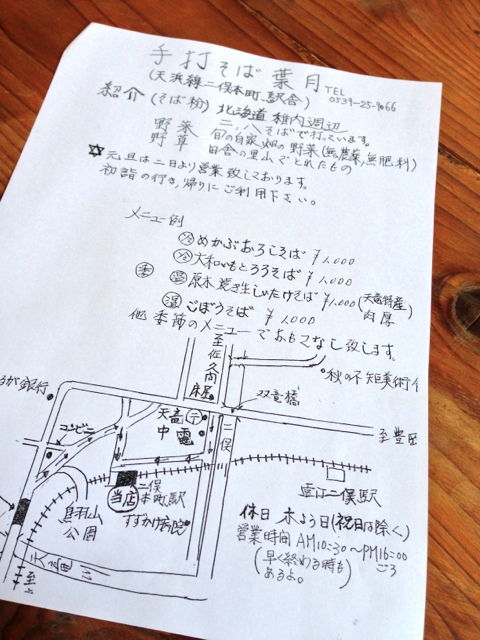 手打そば葉月
(天浜線二俣本町駅舎)
TEL
0539-25-9066
紹介 (そば粉) 北海道稚内週辺
二、八そばで打っています。
野菜 旬の自家畑の野菜(無農薬,無肥料)
野草 田舎の里山でとれたもの
元旦は二日より営業致しております。
初詣の行き,帰りにご利用下さい。
メニュー例
冷 めかぶおろしそば ¥1,000
冷 大和いもとろろそば ¥1,000
季 温 原木焼き生しいたけそば ¥1,000 (天竜特産 肉厚
温 ごぼうそば ¥1,000
他季節のメニューでおもてなし致します。
至佐久間
床屋
秋の不矩美術
双竜橋
るが銀行
コンビニ
天竜
中電
二俣
至豊田
当店
二俣本町駅
すずかけ病院
鳥羽山公園
二俣駅
天
至
休日 木よう日(祝日は除く)
営業時間 AM10:30~PM16:00ごろ
(早く終わる時もあるよ。)